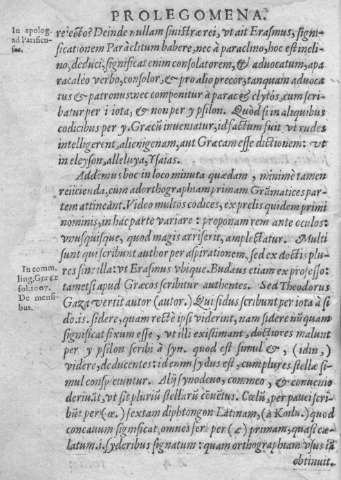 PROLEGOMENA.
In apolog.
ad Parisiẽses.
reiecto? Deinde nullam sinistræ rei, vt ait Erasmus, significationem
Paraclitum habere, nec à paraclino, hoc est inclino,
deduci, significat enim consolatorem, & aduocatum, aparacaleo
verbo, consolor, & pro alio precor, tanquam aduocatus
& patronus: nec componitur à para & clytós, cum scribatur
per i iota, & non per y psilon. Quòd si in aliquibus
codicibus per y. Græcũ inuenıatur, id factum fuit vt rudes
intelligerent, alienigenam, aut Græcam esse dictionem: vt
in eleyson, alleluya, Ysaias.
Addemus hoc in loco minuta quædam, minimè tamen
reiicienda, cum ad orthographiam primam Grãmatices partem
attineãt. Video multos codices, ex prelis quidem primi
nominis, in hac parte variare: proponam rem ante oculos:
vnusquisque, quod magis arriserit, amplectatur. Multi
In comm.
ling. Græc.
fol. 1007.
De mensibus.
sunt que scribunt author per aspirationem, sed ex doctis plures
sin: illa: vt Erasmus vbique. Budæus etiam ex professo:
tametsi apud Græcos scribitur authentes. Sed Theodorus
Gaza vertit autor (autor.) Qui sidus scribunt per iota à sido
.is. sidere, quam rectè ipsi viderint, nam sidere nũquam
significat fixum esse, vt illi existimant, doctiores malunt
per y psilon scribi à syn. quod est simul &, (idin,)
videre, deducentes: id enim sydus est, cum plures stellæ simul
conspiciuntur. Alij synodeuo, commeo, & conuenio
deriuãt, vt sit plurıũ stellarũ cõuẽtus. Cælũ, per pauci scribũt
per (æ.) sextam diphtongon Latinam, (à Koılu.) quod
concauum significat, omnes ferè per (æ) primam, quasi cælatum
.i. syderibus signatum: quam orthographiam vsus iã
obtinuit.